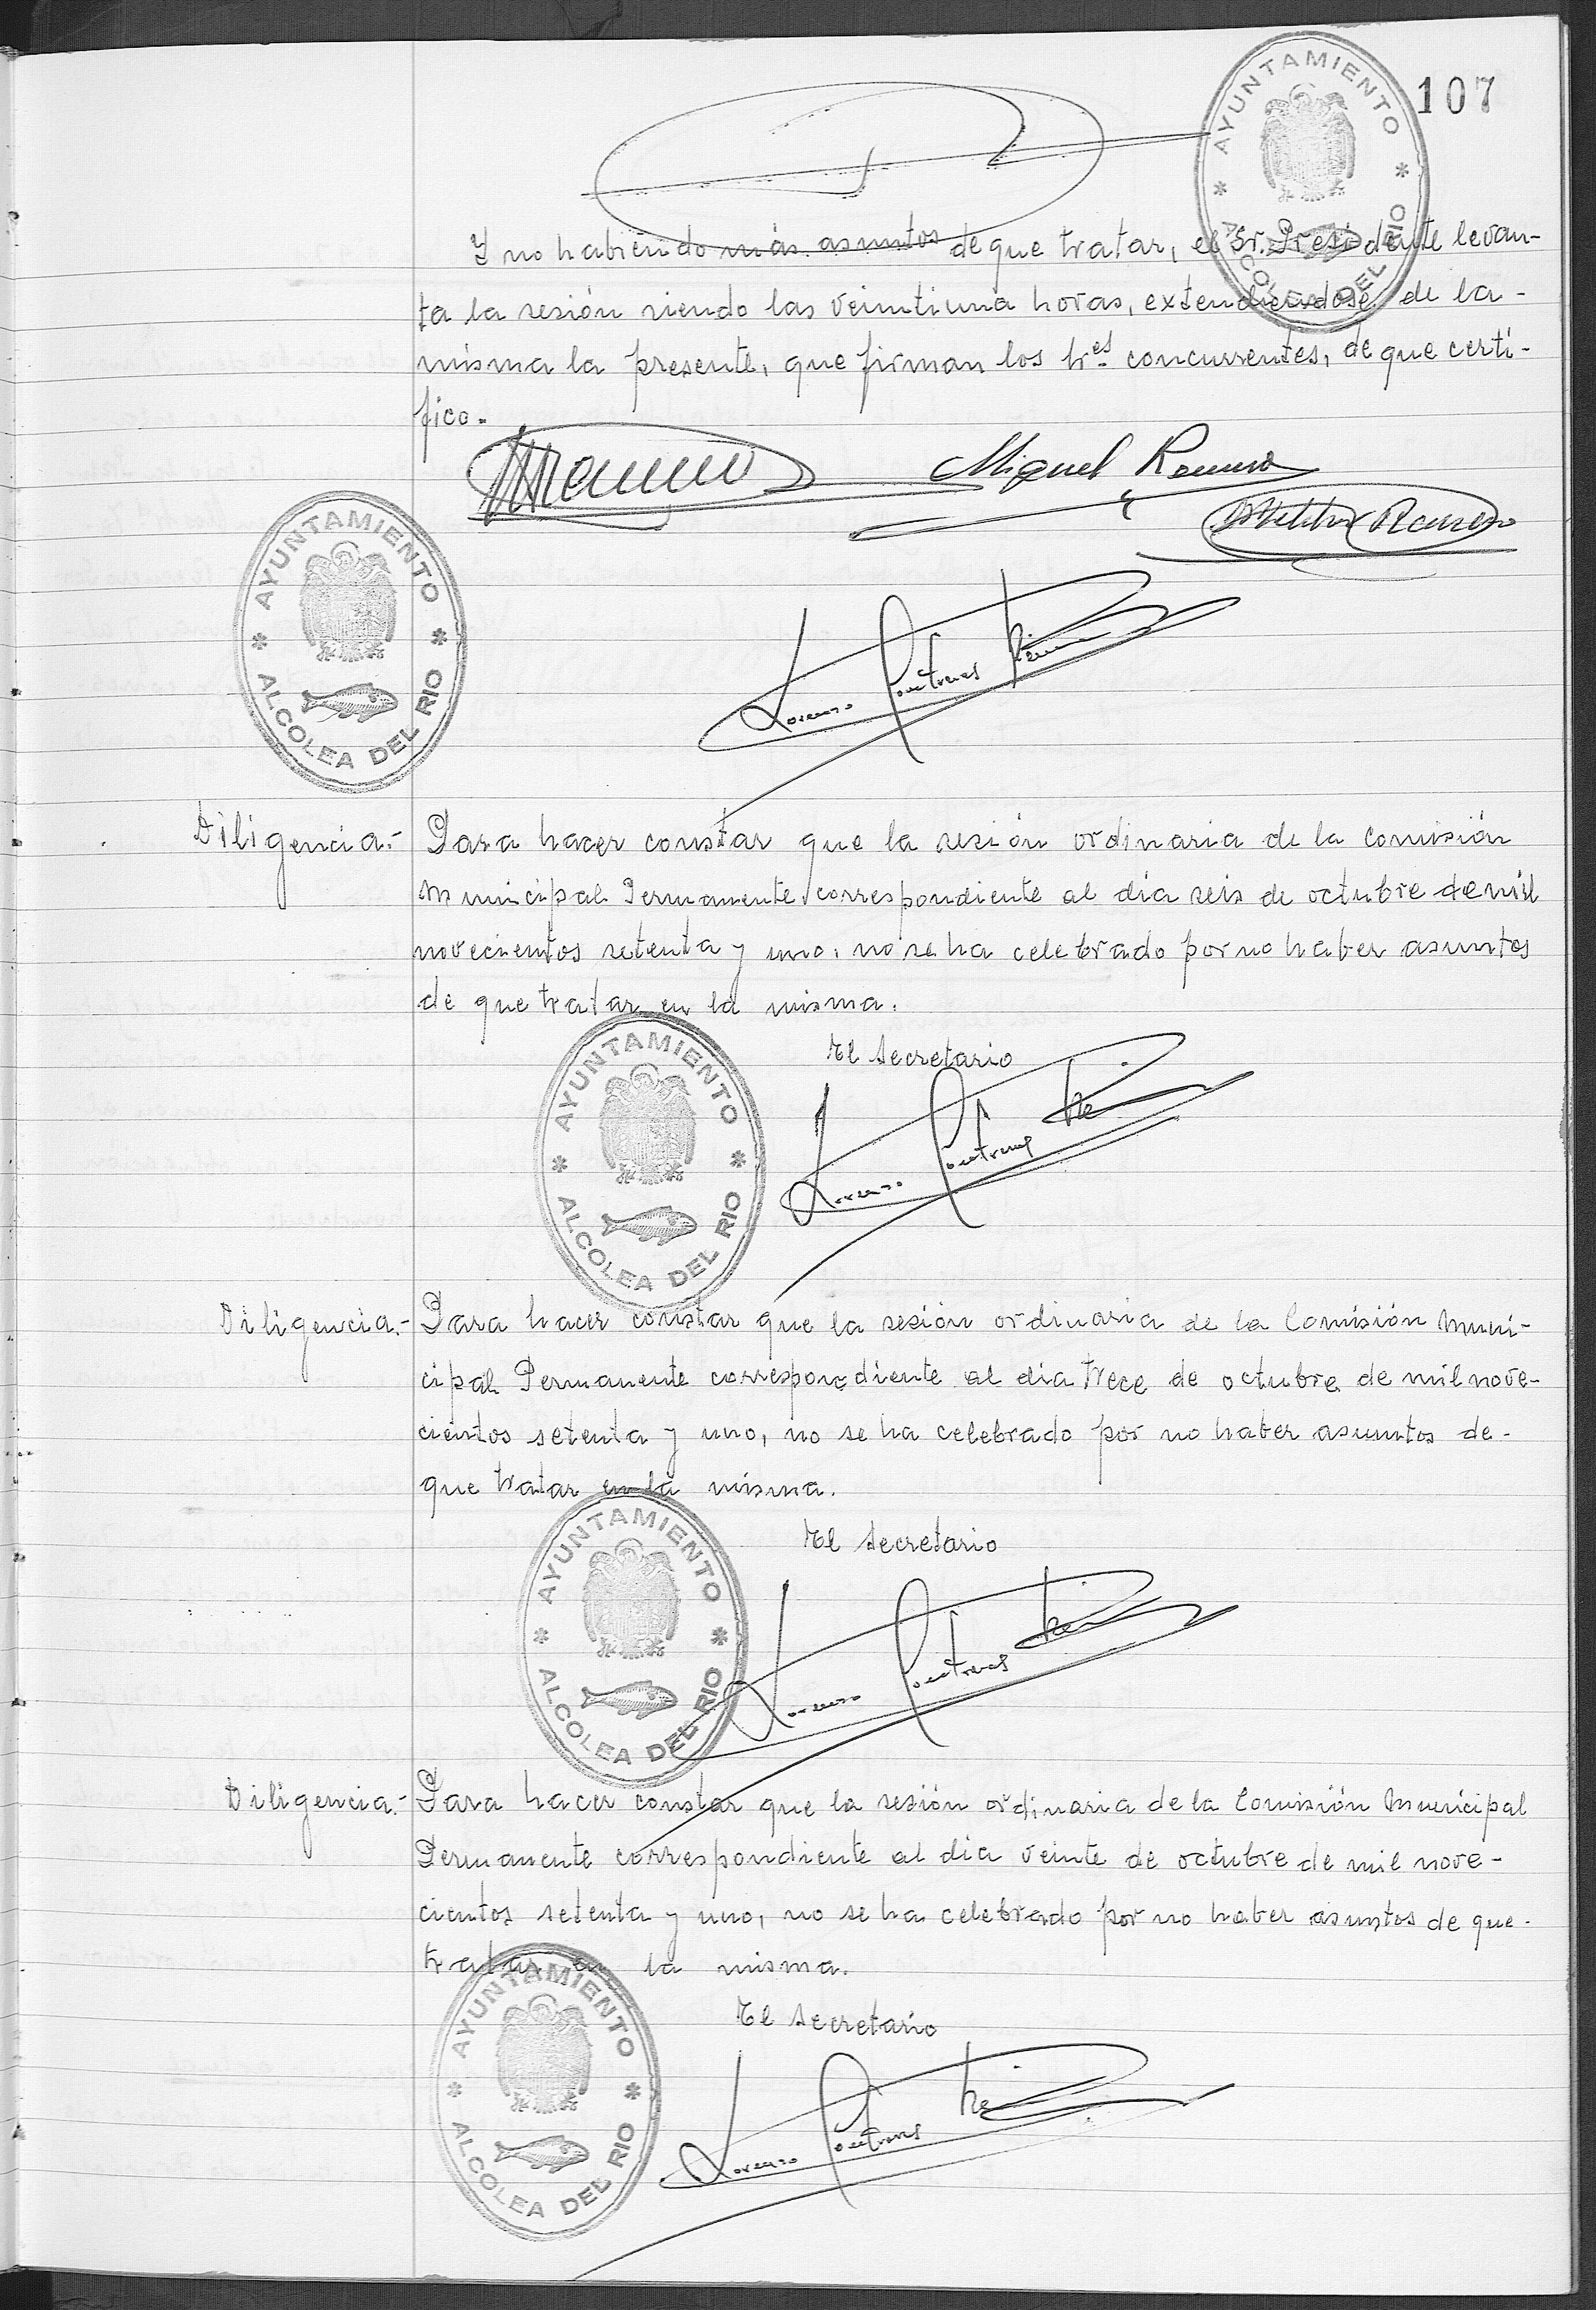 107
AYUNTAMIENTO * ALCOLEA DEL RIO *
Y no habiendo más asuntos de que tratar, el Sr. Presidente levan-
ta la sesión siendo las veintiuna horas, extendiendose de la-
misma la presente, que firman los Sres. concurrentes, de que certi-
fico.-
Miguel Romero
AYUNTAMIENTO * ALCOLEA DEL RIO *
Lorenzo Contreras
Diligencia.- Para hacer constar que la sesión ordinaria de la Comisión
Municipal Permanente correspondiente al dia seis de octubre de mil
novecientos setenta y uno, no se ha celebrado por no haber asuntos
de que tratar en la misma.
El Secretario
AYUNTAMIENTO * ALCOLEA DEL RIO *
Lorenzo Contreras
Diligencia.- Para hacer constar que la sesión ordinaria de la Comisión Muni-
cipal Permanente correspondiente al dia trece de octubre de mil nove-
cientos setenta y uno, no se ha celebrado por no haber asuntos de-
que tratar en la misma.
El Secretario
AYUNTAMIENTO * ALCOLEA DEL RIO *
Lorenzo Contreras
Diligencia.- Para hacer constar que la sesión ordinaria de la Comisión Municipal
Permanente correspondiente al dia veinte de octubre de mil nove-
cientos setenta y uno, no se ha celebrado por no haber asuntos de que-
tratar en la misma.
El Secretario
AYUNTAMIENTO * ALCOLEA DEL RIO *
Lorenzo Contreras